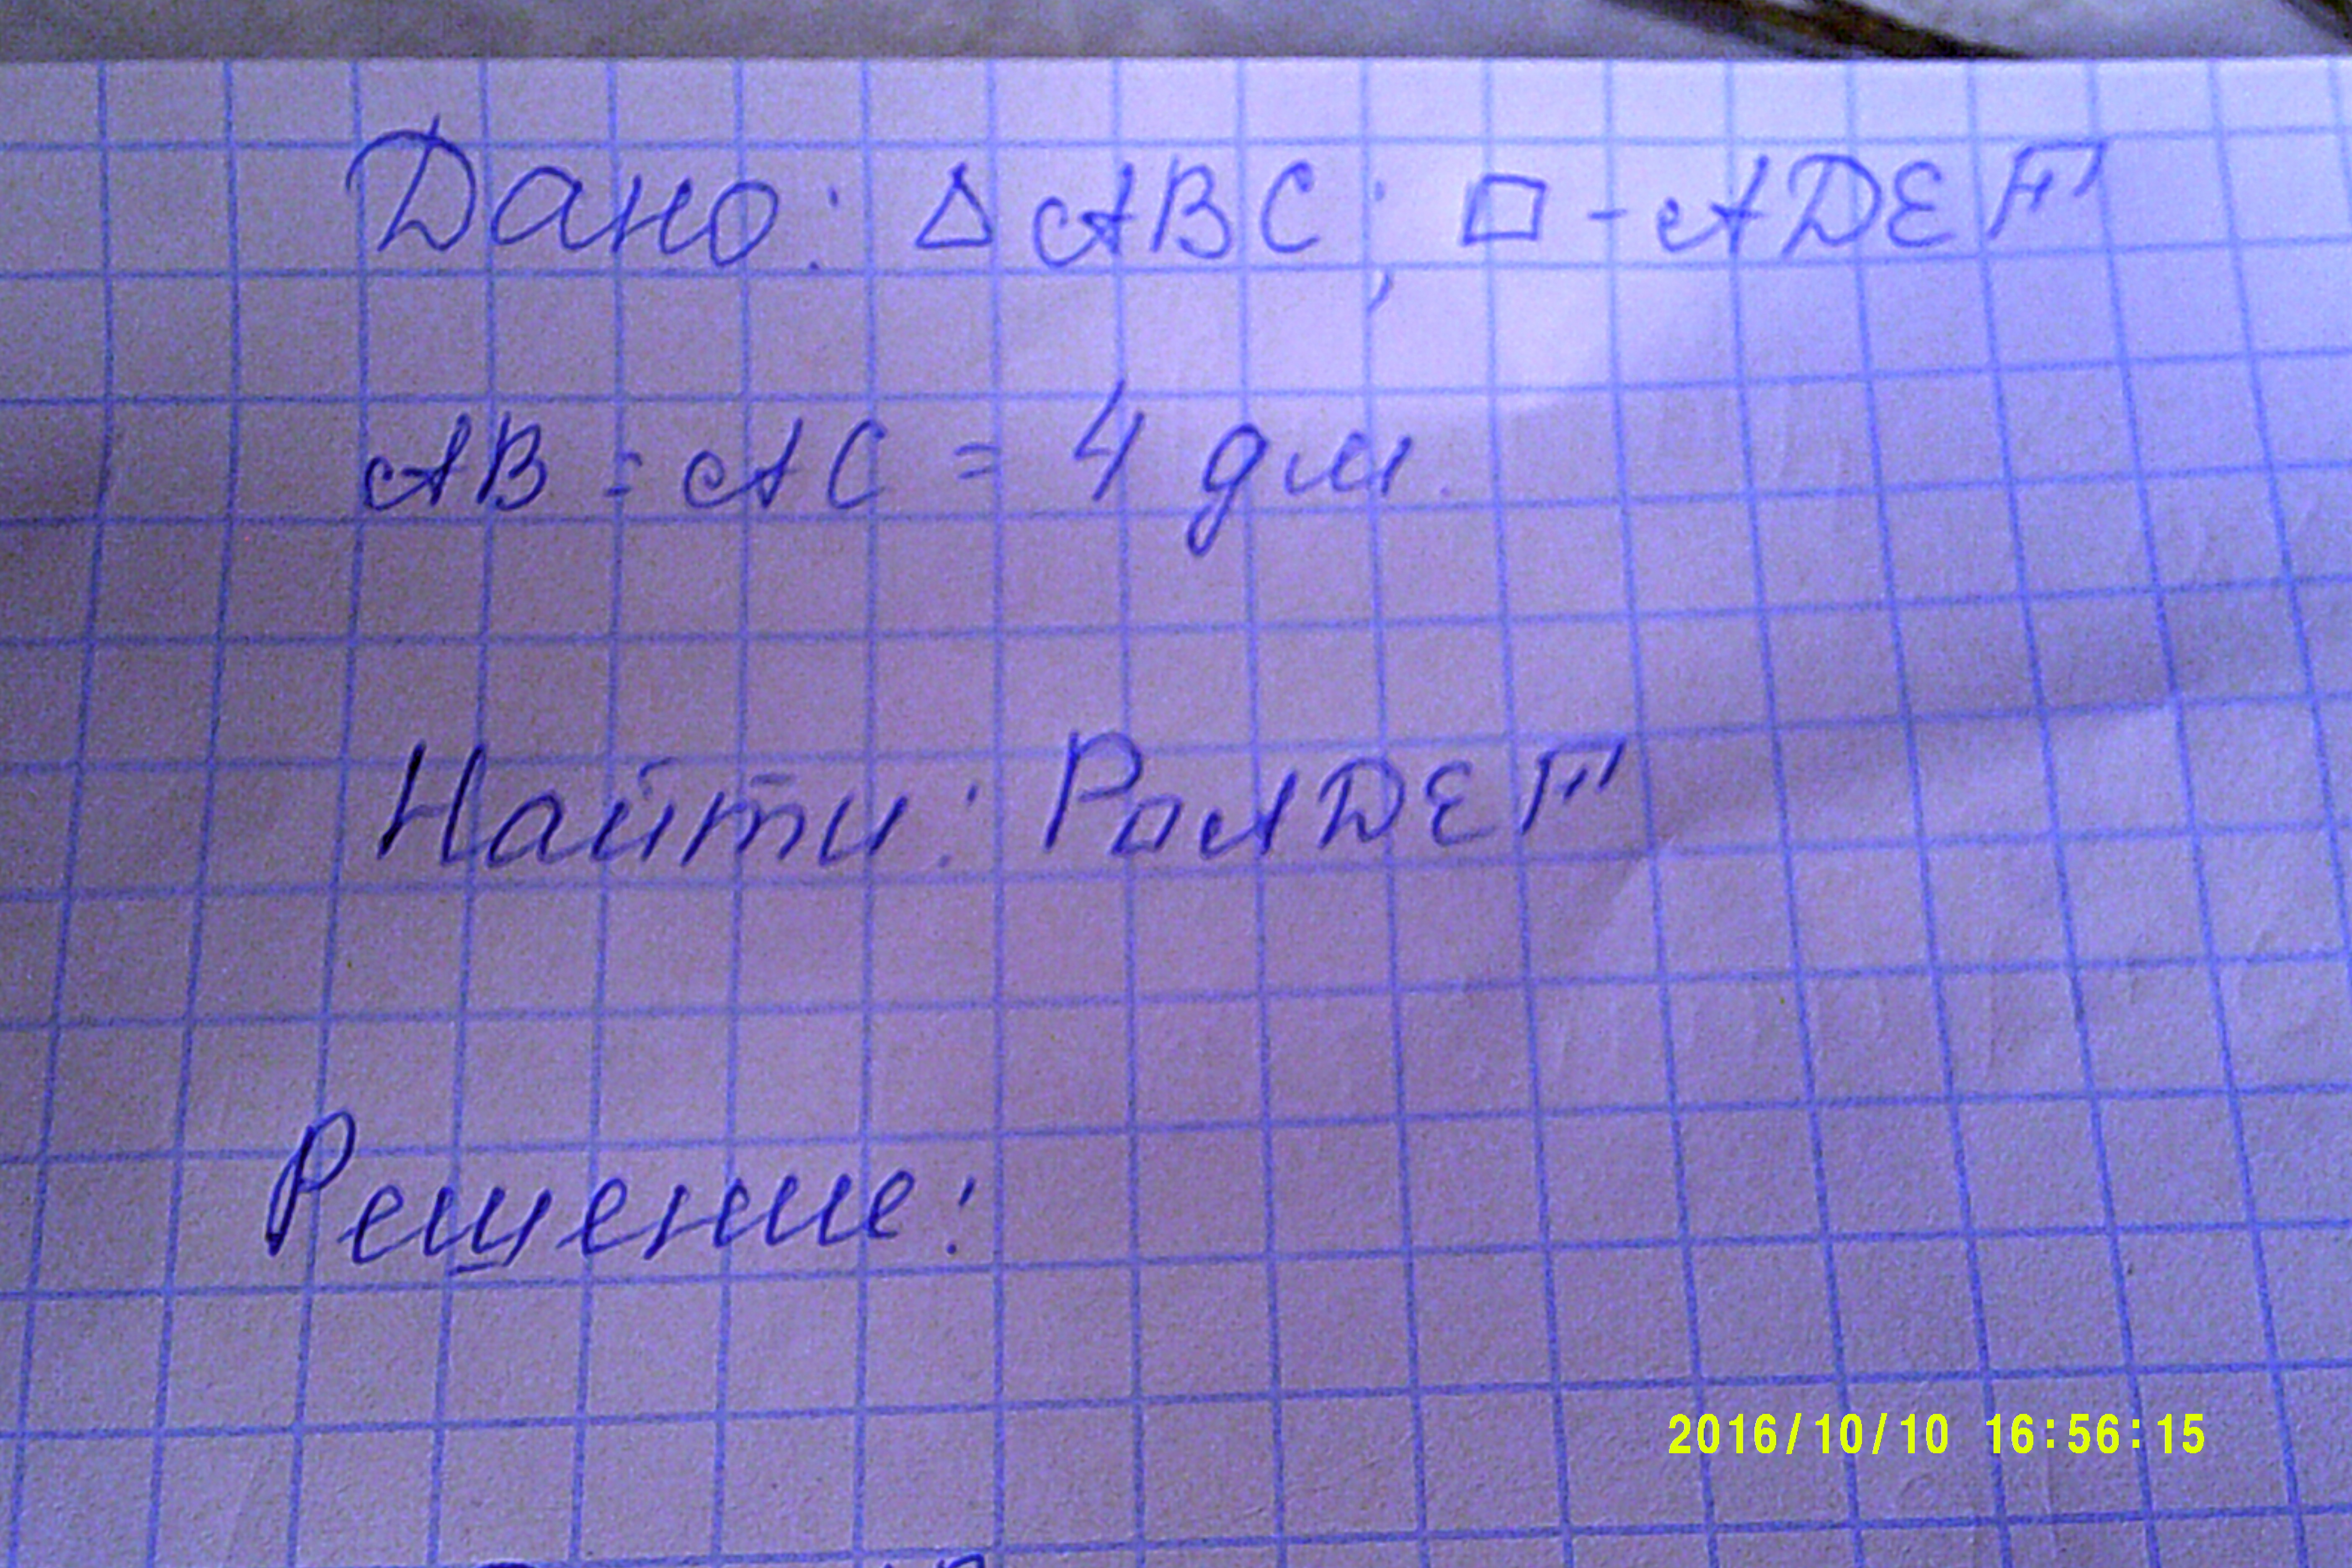 Дано: △ABC; □-ADEF
AB = AC = 4 дм.
Найти: P□ADEF
Решение:
2016/10/10 16:56:15